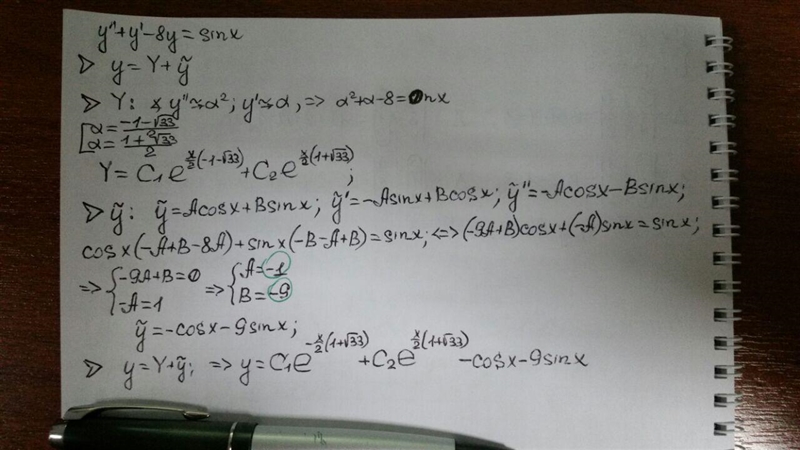 y''+y'-8y=sinx
▷ y=Y+ỹ
▷ Y: ∡ y''≈α²; y'≈α, => α²+α-8=0nx
[α=(-1-√33)/2
[α=(1+√33)/2
Y=C₁e^(x/2(-1-√33))+C₂e^(x/2(1+√33));
▷ ỹ: ỹ=Acosx+Bsinx; ỹ'=-Asinx+Bcosx; ỹ''=-Acosx-Bsinx;
cosx(-A+B-8A)+sinx(-B-A+B)=sinx; <=> (-9A+B)cosx+(-A)sinx=sinx;
=> {-9A+B=0 => {A=-1
{-A=1 {B=-9
ỹ=-cosx-9sinx;
▷ y=Y+ỹ; => y=C₁e^(-x/2(1+√33))+C₂e^(x/2(1+√33))-cosx-9sinx